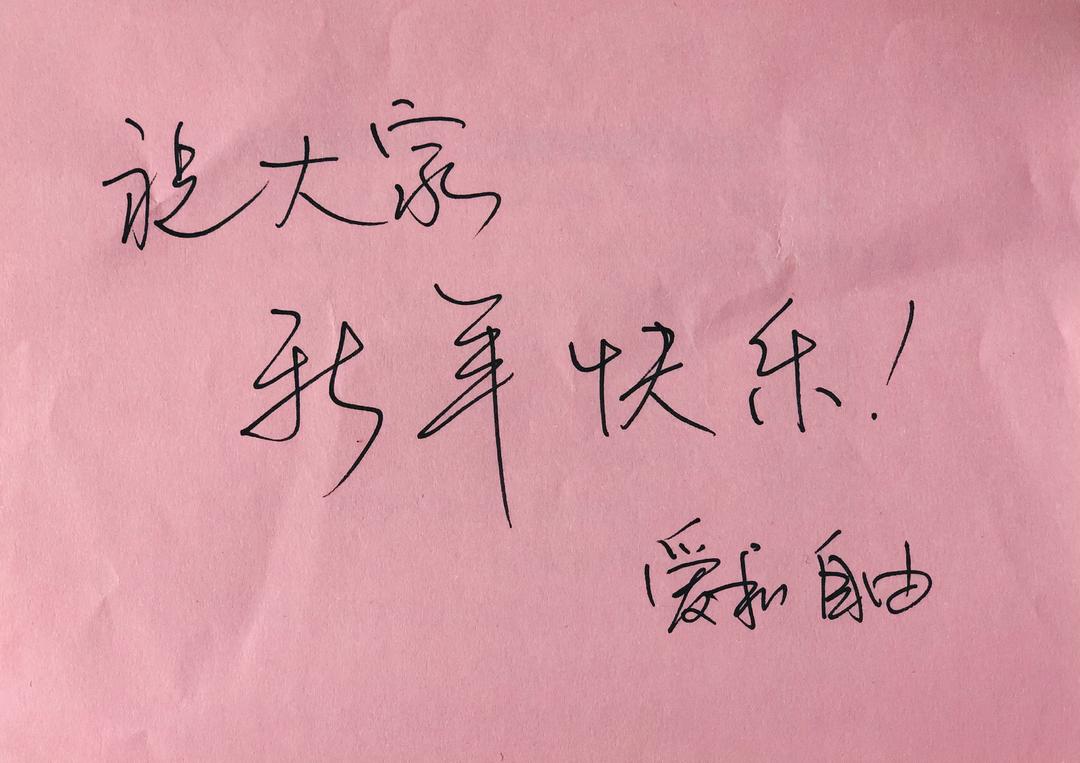 祝大家
新年快乐!
爱和自由